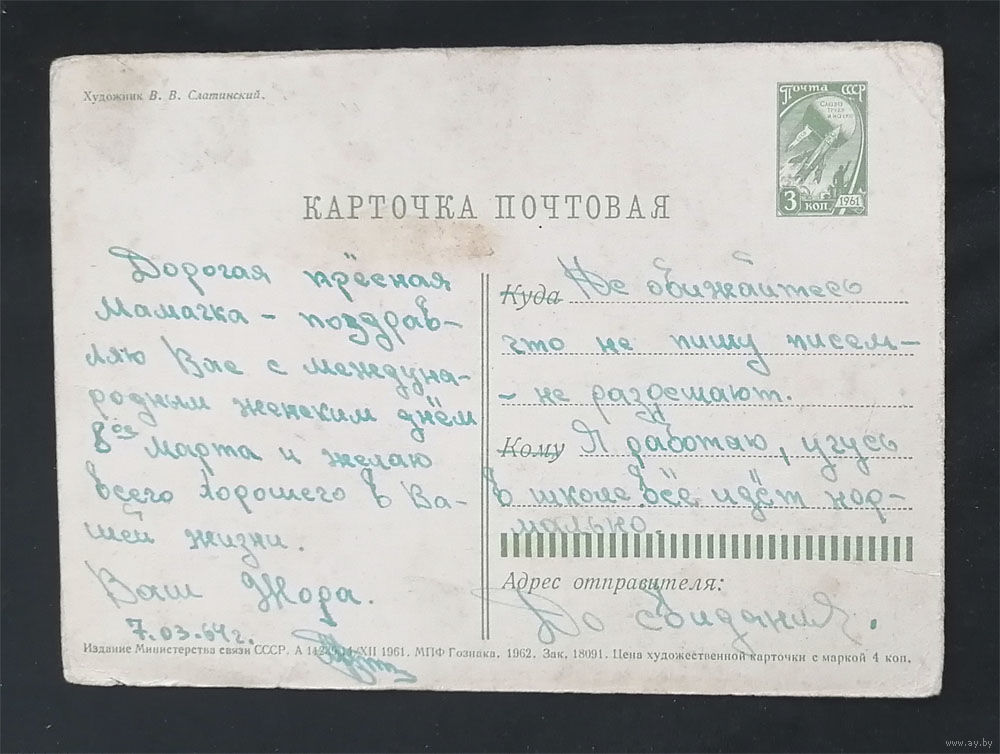 Художник В. В. Слатинский.
Почта СССР
СЛАВА
ТРУДУ
И НАУКЕ
3 КОП. 1961
КАРТОЧКА ПОЧТОВАЯ
Дорогая крёсная
Мамачка – поздрав-
ляю Вас с междуна-
родным женским днём
8ое марта и желаю
всего хорошего в Ва-
шей жизни.
Ваш Жора.
7.03.64г.
Куда Не обижайтесь
что не пишу писем –
– не разрешают.
Кому Я работаю, учусь
в школе. всё идёт нор-
мально.
Адрес отправителя:
До свидания.
Издание Министерства связи СССР. А 14/XII 1961. МПФ Гознака. 1962. Зак. 18091. Цена художественной карточки с маркой 4 коп.
www.ay.by